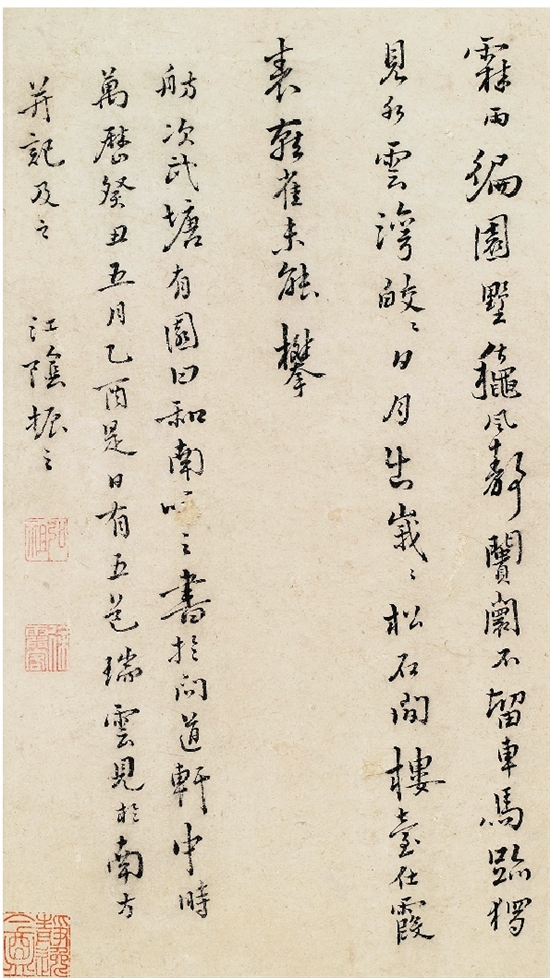 霖雨編園墅 風靜闤闠不留車馬蹤獨
見水雲灣皎皎日月出嵗嵗松石間樓臺仕霞
表 雀未能攀
舫次武塘有園曰和南 之書於问道軒中時
萬曆癸丑五月乙酉是日有五色瑞雲見於南方
并記及之 江陰振之